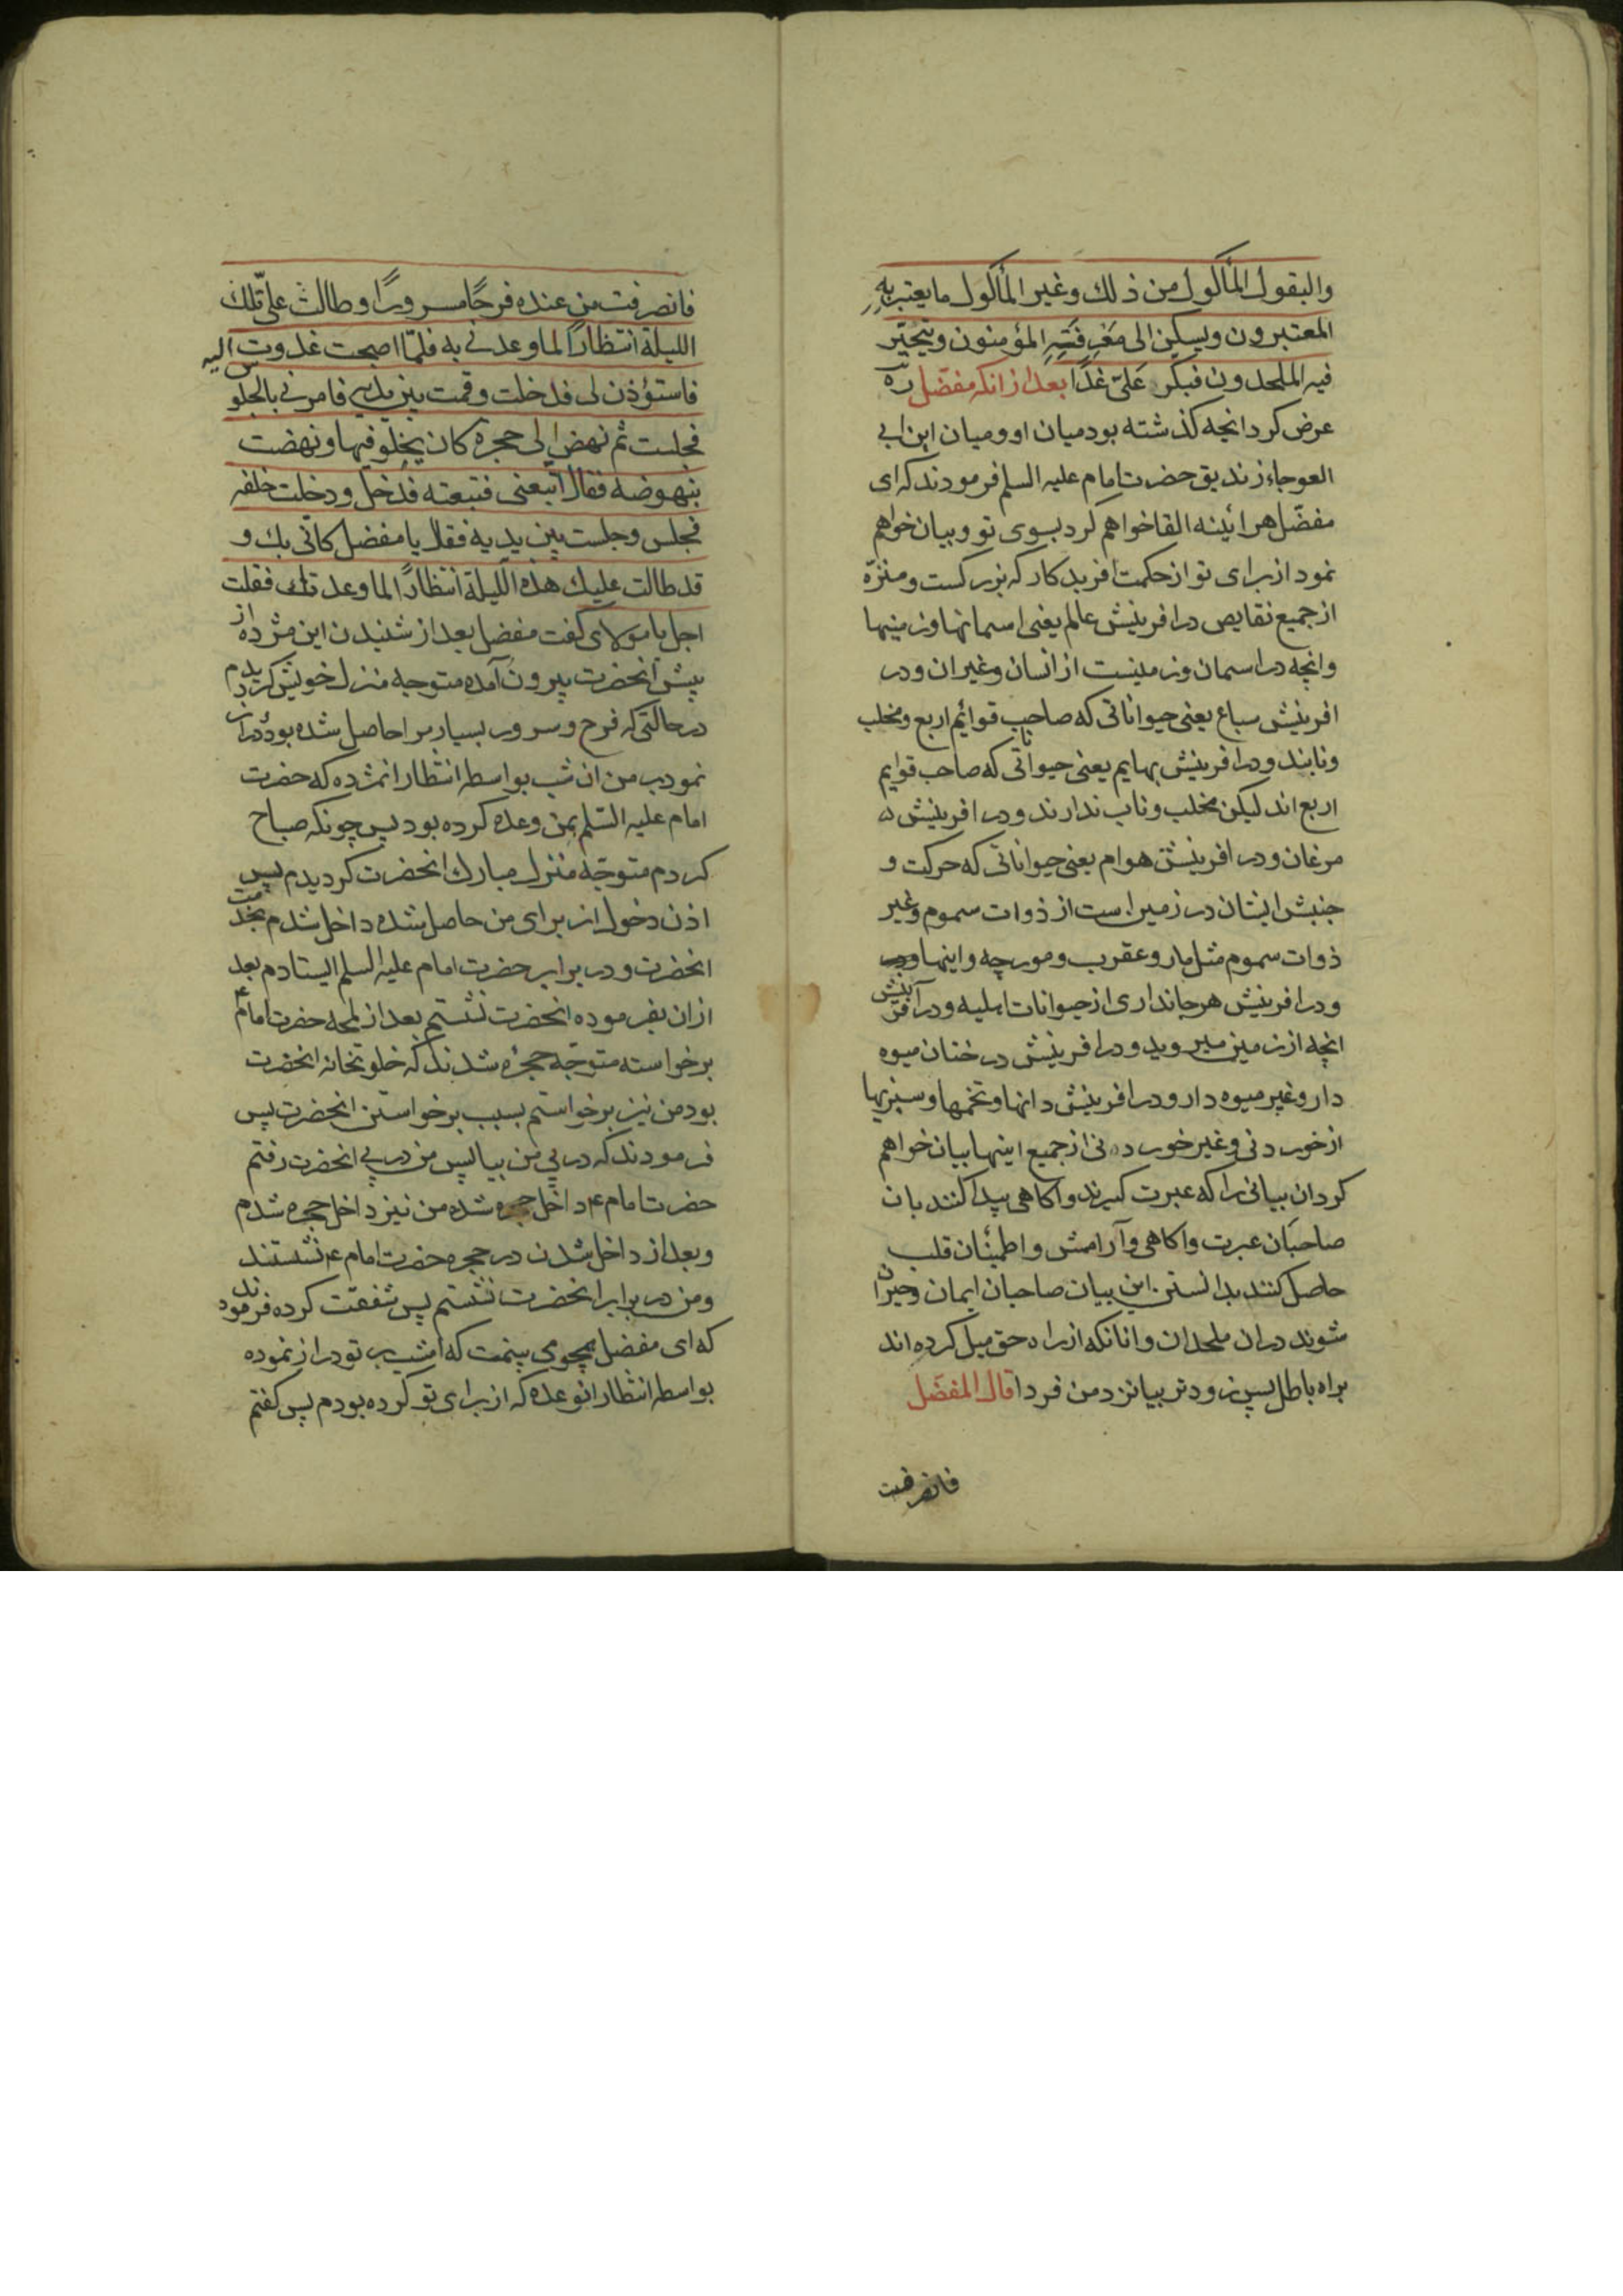 والبقول المأكول من ذلك وغير المأكول ما يعتبر به
المعتبرون ويسكن الى معرفته المؤمنون ويتحيّر
فيه الملحدون فبكر علىّ غدًا بعد از انكه مفضّل ره
عرض كرد انچه كذشته بود ميان او وميان ابن ابى
العوجاء زنديق حضرت امام عليه السلم فرمودند كه اى
مفضّل هرائينه القا خواهم كرد بسوى تو و بيان خواهم
نمود از براى تو از حكمت افريدكار كه بزركست و منزّه
از جميع نقايص در افرينش عالم يعنى اسمانها و زمينها
وانچه در اسمان و زمينست از انسان و غير ان و در
افرينش سباع يعنى حيواناتى كه صاحب قوائم اربع و مخلب
ونابند و در افرينش بهايم يعنى حيواناتى كه صاحب قوايم
اربع اند ليكن مخلب و ناب ندارند و در افرينش
مرغان و در افرينش هوام يعنى حيواناتى كه حركت و
جنبش ايشان در زمين است از ذوات سموم و غير
ذوات سموم مثل مار و عقرب و مورچه و اينها
و در افرينش هر جاندارى از حيوانات ابليه و در آفرينش
انچه از زمين ميرويد و در افرينش درختان ميوه
دار و غير ميوه دار و در افرينش دانها و تخمها و سبزيها
از خوردنى و غير خوردنى از جميع اينها بيان خواهم
كرد ان بيانى را كه عبرت كيرند و اكاهى پيدا كنند بان
صاحبان عبرت و اكاهى و آرامش و اطمئنان قلب
حاصل كنند بدانستن اين بيان صاحبان ايمان و حيران
شوند در ان ملحدان و انانكه از راه حق ميل كرده اند
براه باطل پس زودتر بيا نزد من فردا قال المفضّل
فانصرفت
فانصرفت من عنده فرحًا مسرورًا وطالت علىّ تلك
الليلة انتظارًا لما وعدنى به فلمّا اصبحت غدوت اليه
فاستؤذن لى فدخلت وقمت بين يديه فامرنى بالجلوس
فجلست ثم نهض الى حجرة كان يخلو فيها ونهضت
بنهوضه فقال اتبعنى فتبعته فدخل ودخلت خلفه
فجلس وجلست بين يديه فقال يا مفضل كانّى بك و
قد طالت عليك هذه الليلة انتظارًا لما وعدتك فقلت
اجل يا مولاى كفت مفضل بعد از شنيدن اين مژده از
پيش انحضرت بيرون آمده متوجه منزل خويش كرديدم
در حالتى كه فرح و سرور بسيار مرا حاصل شده بود و دراز
نمود بر من ان شب بواسطه انتظار ان مژده كه حضرت
امام عليه السّلم بمن وعده كرده بود پس چونكه صباح
كردم متوجّه منزل مبارك انحضرت كرديدم پس
اذن دخول از براى من حاصل شده داخل شدم بخدمت
انحضرت و در برابر حضرت امام عليه السلم ايستادم بعد
از ان بفرموده انحضرت نشستم بعد از لمحه حضرت امام ع
برخواسته متوجّه حجرهٔ شدند كه خلوتخانه انحضرت
بود من نيز برخواستم بسبب برخواستن انحضرت پس
فرمودند كه در پى من بيا پس من در پى انحضرت رفتم
حضرت امام ع داخل حجره شده من نيز داخل حجره شدم
وبعد از داخل شدن در حجره حضرت امام ع نشستند
ومن در برابر انحضرت نشستم پس شفقت كرده فرمودند
كه اى مفضل همچو مى بينمت كه امشب بر تو دراز نموده
بواسطه انتظار انوعده كه از براى تو كرده بودم پس كفتم